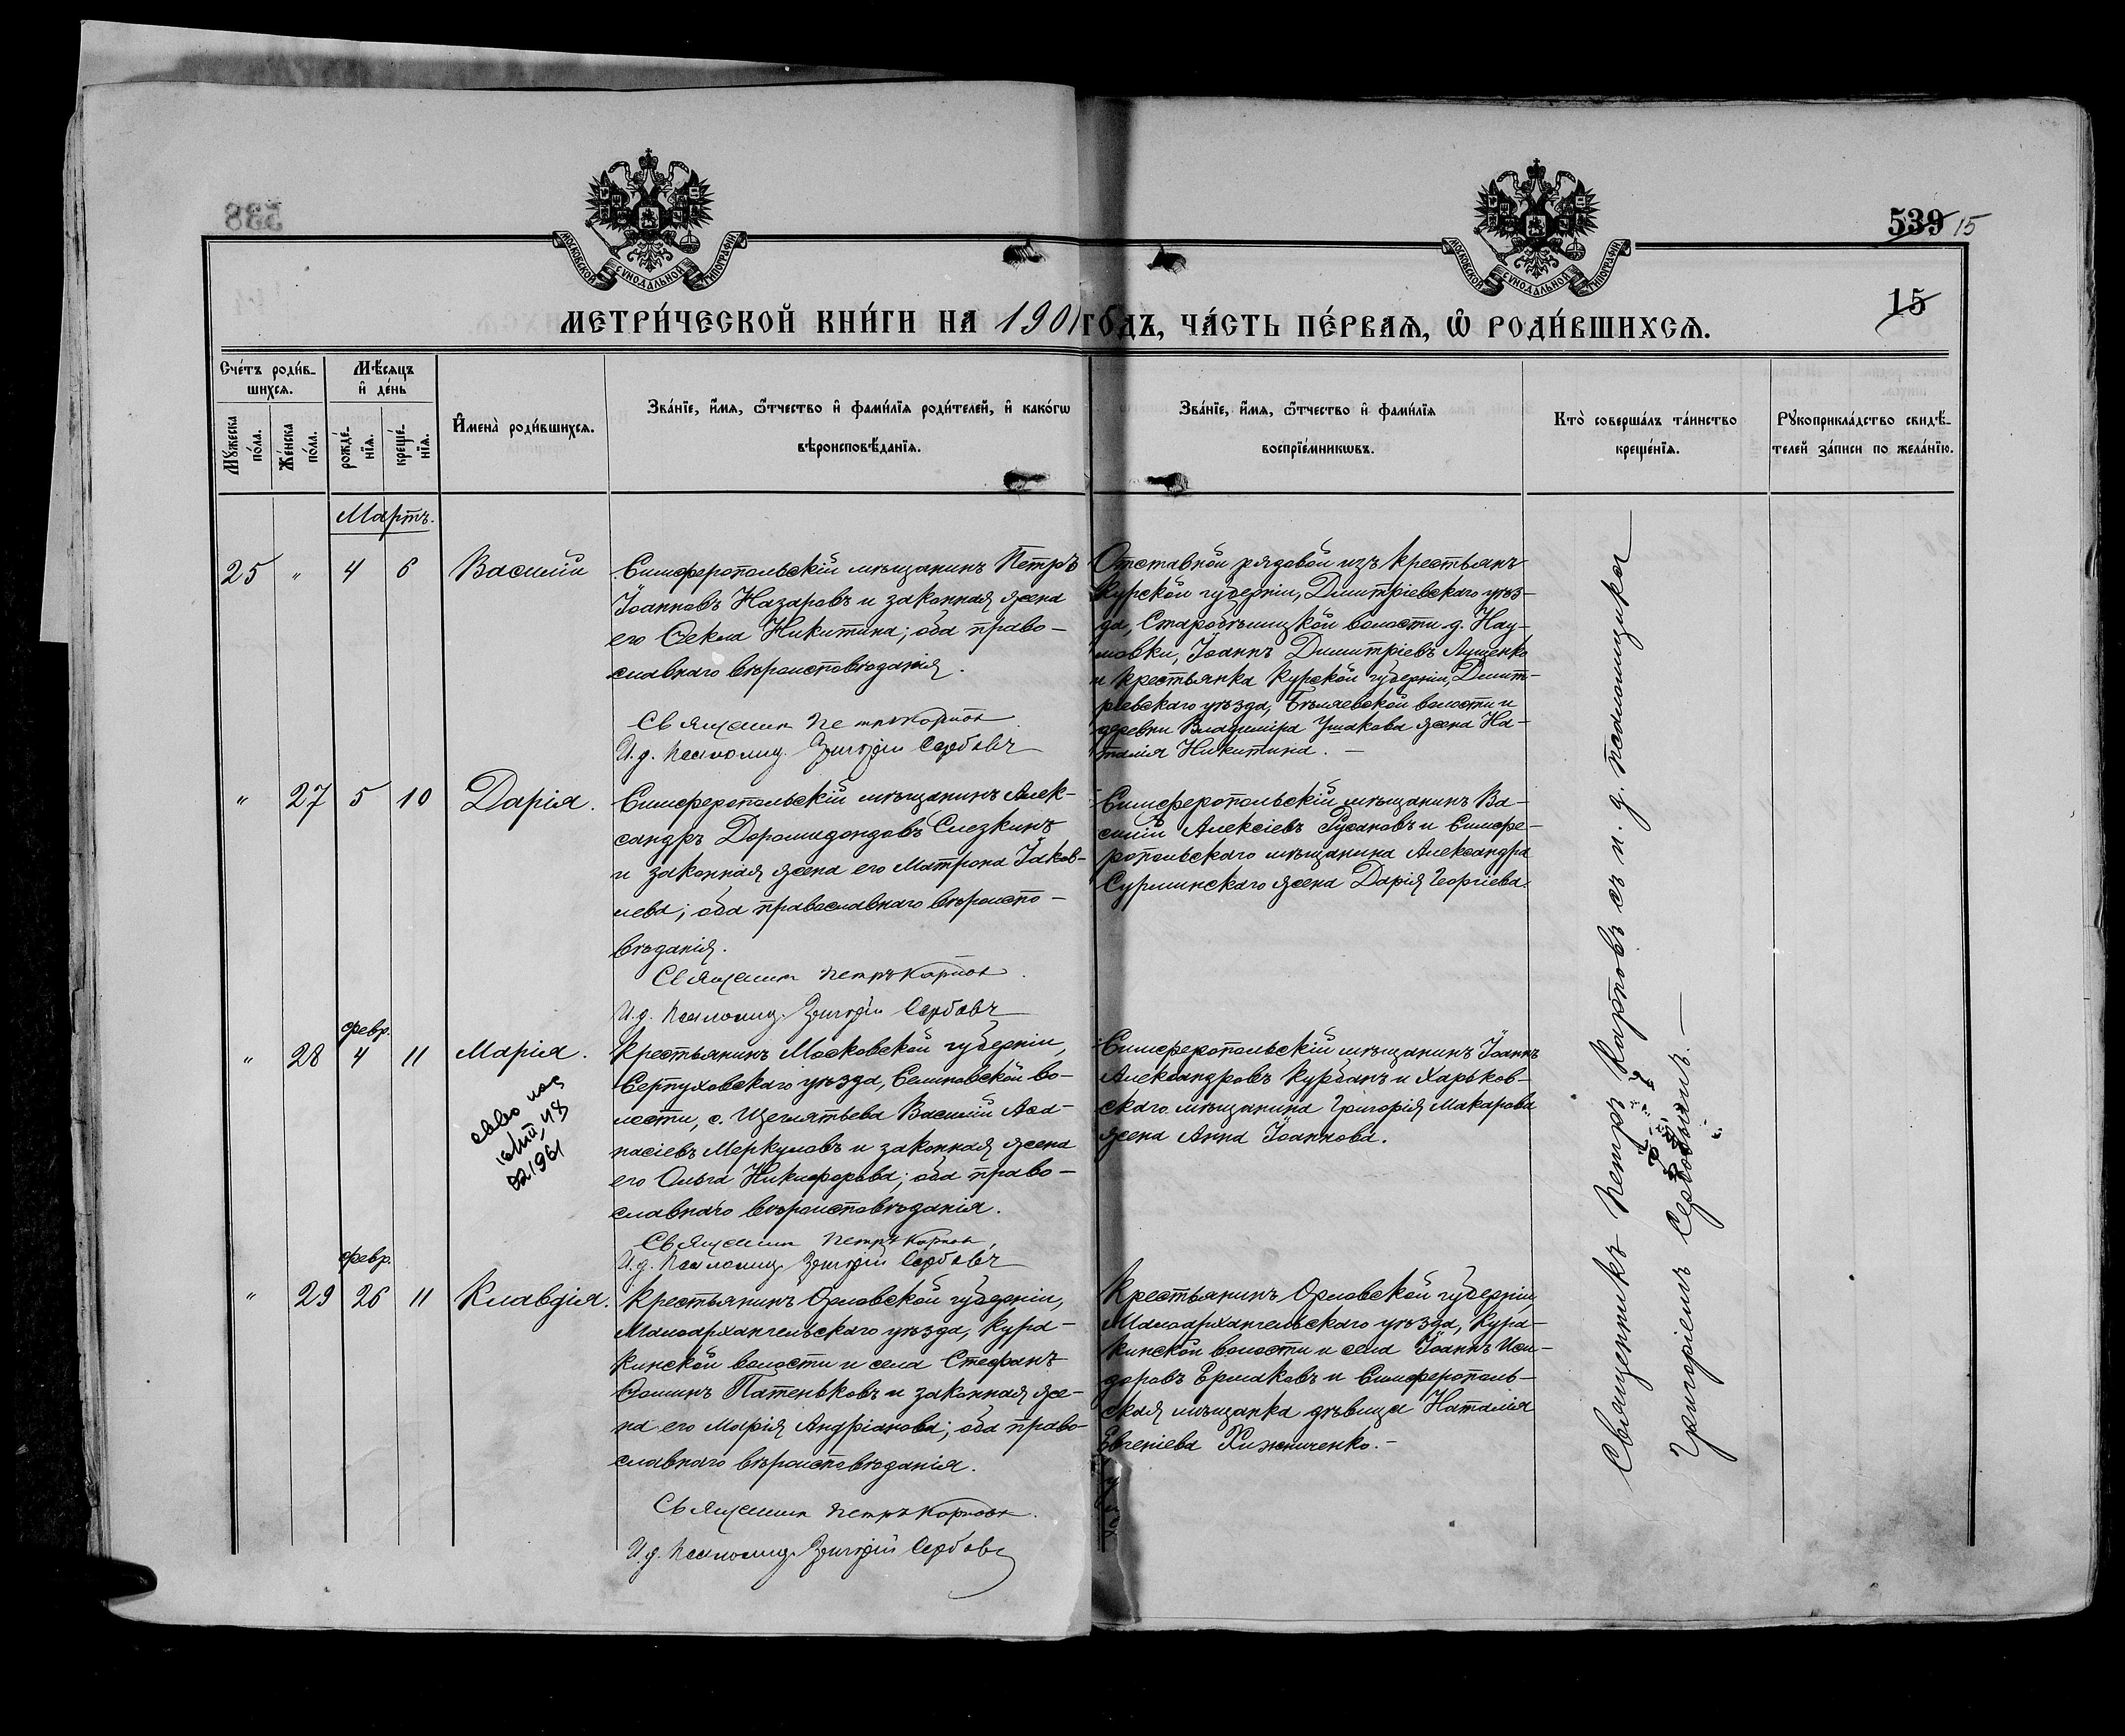 538
539 15
15
МОСКОВСКОЙ СѴНОДАЛЬНОЙ ТИПОГРАФІИ
МОСКОВСКОЙ СѴНОДАЛЬНОЙ ТИПОГРАФІИ
МЕТРИ́ЧЕСКОЙ КНИ́ГИ НА 1901 ГОДЪ, ЧА́СТЬ ПЕ́РВАѦ, Ѡ҆ РОДИ́ВШИХСѦ.
Сче́тъ роди́в-
шихсѧ.
Мѣ́сѧцъ
и҆ де́нь
Мꙋ́жеска
по́ла.
Же́нска
по́ла.
рожде́-
нїѧ.
креще́-
нїѧ.
И҆мена̀ роди́вшихсѧ.
Зва́нїе, и҆́мѧ, ѻ҆́тчество и҆ фами́лїѧ роди́телей, и҆ како́гѡ
вѣроисповѣ́данїѧ.
Зва́нїе, и҆́мѧ, ѻ҆́тчество и҆ фами́лїѧ
воспрїе́мникѡвъ.
Кто̀ соверша́лъ та́инство
креще́нїѧ.
Рꙋкоприкла́дство свидѣ́-
телей за́писи по жела́нїю.
Мартъ.
25 " 4 6 Василій
Симферопольскій мѣщанинъ Петръ
Іоанновъ Назаровъ и законная жена
его Ѳекла Никитина; оба право-
славнаго вѣроисповѣданія.
Священник Петръ Карпов
И.д. Псаломщ. Григорій Сербовъ
Отставной рядовой изъ крестьянъ
Курской губерніи, Димитріевскаго уѣз-
да, Старобѣлицкой волости д. Нау-
мовки, Іоаннъ Димитріевъ Лущенко
и крестьянка Курской губерніи, Димит-
ріевскаго уѣзда, Бѣляевской волости и
деревни Владиміра Ушакова жена На-
талія Никитина. —
" 27 5 10 Дарія.
Симферопольскій мѣщанинъ Алек-
сандръ Доримедонтовъ Слезкинъ
и законная жена его Матрона Іаков-
лева; оба православнаго вѣроиспо-
вѣданія.
Священник Петръ Карпов.
И.д. Псаломщ. Григорій Сербовъ
Симферопольскій мѣщанинъ Ва-
силій Алексіевъ Русановъ и Симфе-
ропольскаго мѣщанина Александра
Сурминскаго жена Дарія Георгіева.
февр.
" 28 4 11 Марія.
1961
Крестьянинъ Московской губерніи,
Серпуховскаго уѣзда, Семновской во-
лости, с. Щеглятьева Василій Аѳа-
насіевъ Меркуловъ и законная жена
его Ольга Никифорова; оба право-
славнаго вѣроисповѣданія.
Священник Петръ Карпов,
И.д. Псаломщ. Григорій Сербовъ
Симферопольскій мѣщанинъ Іоаннъ
Александровъ Курбанъ и Харьков-
скаго мѣщанина Григорія Макарова
жена Анна Іоаннова.
февр.
" 29 26 11 Клавдія.
Крестьянинъ Орловской губерніи,
Малоархангельскаго уѣзда, Кура-
кинской волости и села Стефанъ
Ѳоминъ Патеньковъ и законная же-
на его Марія Андріанова; оба право-
славнаго вѣроисповѣданія.
Священник Петръ Карпов.
И.д. Псаломщ. Григорій Сербовъ
Крестьянинъ Орловской губерніи,
Малоархангельскаго уѣзда, Кура-
кинской волости и села Іоаннъ Иси-
доровъ Ермаковъ и Симферополь-
ская мѣщанка дѣвица Наталія
Евгеніева Хижниченко. —
Священникъ Петръ Карповъ съ и. д. псаломщика
Григоріемъ Сербовымъ. —